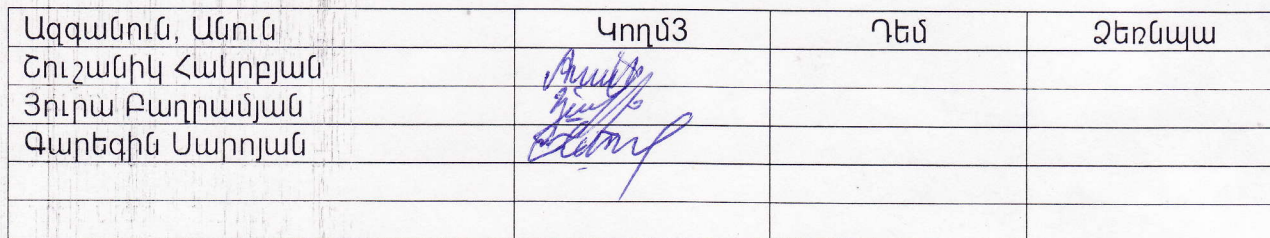 Ազգանուն, Անուն Կողմ3 Դեմ Ձեռնպա
Շուշանիկ Հակոբյան
Յուրա Բաղրամյան
Գարեգին Սարոյան